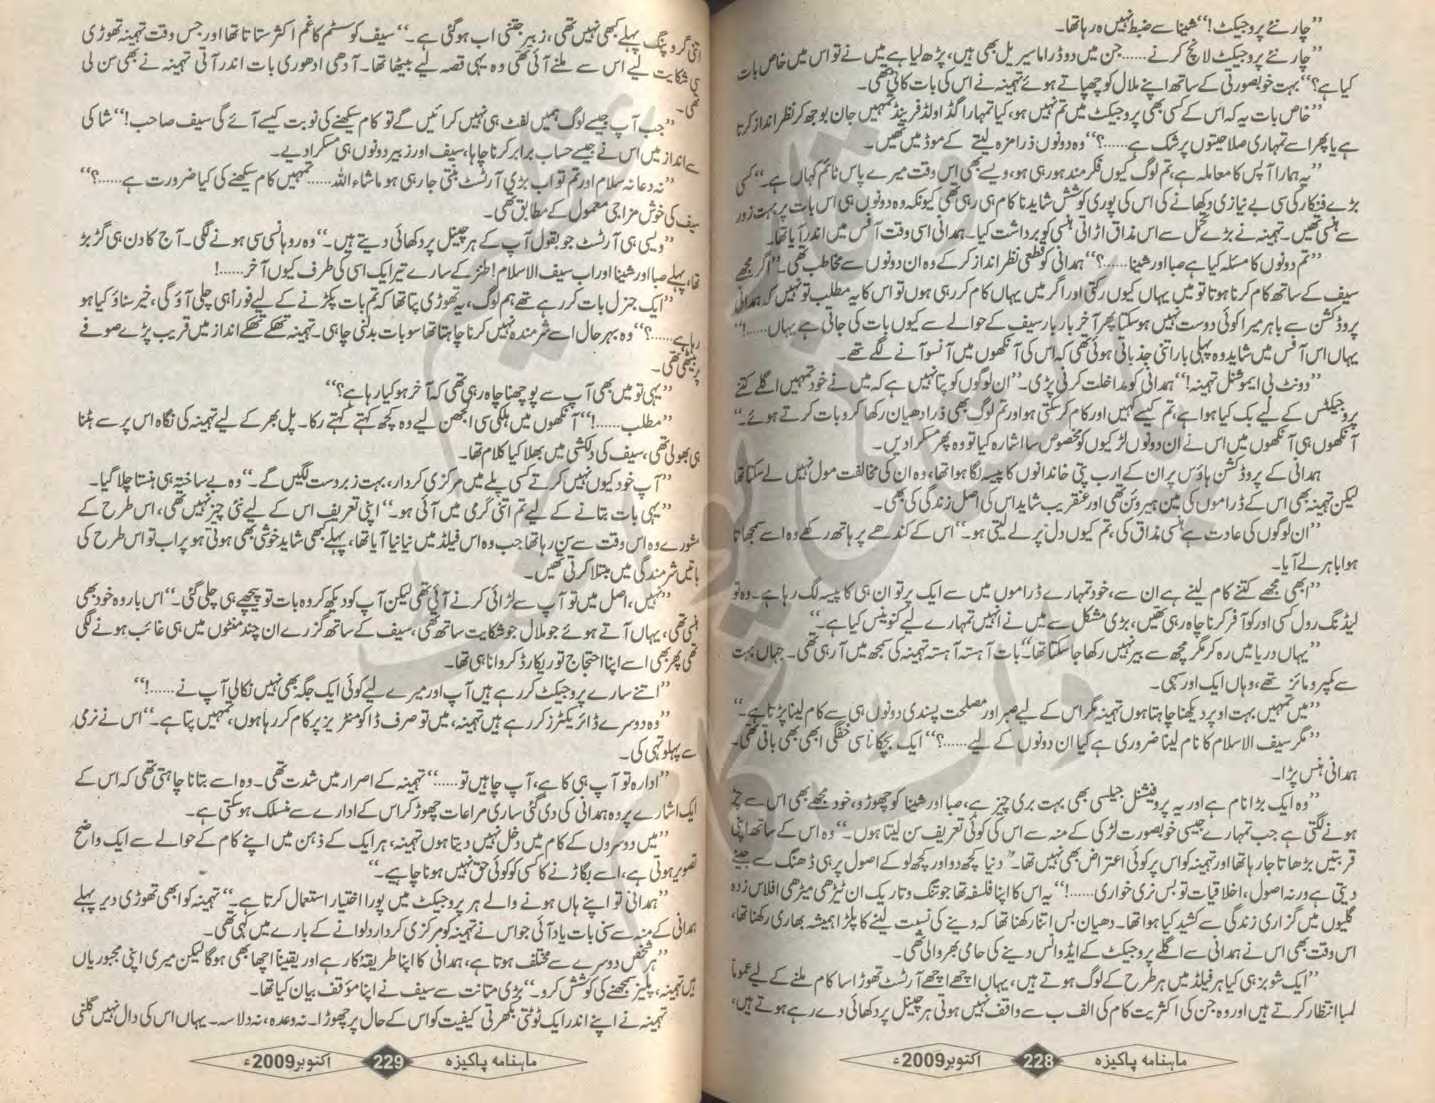 ”چار نئے پروجیکٹ!“ شینا سے ضبط نہیں ہو رہا تھا۔
”چار نئے پروجیکٹ لانچ کرنے...... جن میں دو ڈراما سیریل بھی ہیں، پڑھ لیا ہے میں نے تو اس میں خاص بات
کیا ہے؟“ بہت خوبصورتی کے ساتھ اپنے ملال کو چھپاتے ہوئے تہمینہ نے اس کی بات کاٹی تھی۔
”خاص بات یہ کہ اس کے کسی بھی پروجیکٹ میں تم نہیں ہو، کیا تمہارا گڈ اولڈ فرینڈ تمہیں جان بوجھ کر نظر انداز کرتا
ہے یا پھر اسے تمہاری صلاحیتوں پر شک ہے......؟“ وہ دونوں ذرا مزہ لینے کے موڈ میں تھیں۔
”یہ ہمارا آپس کا معاملہ ہے، تم لوگ کیوں فکرمند ہو رہی ہو، ویسے بھی اس وقت میرے پاس ٹائم کہاں ہے۔“ کسی
بڑے فنکار کی سی بے نیازی دکھانے کی اس کی پوری کوشش شاید ناکام ہی رہی تھی کیونکہ وہ دونوں ہی اس بات پر بہت زور
سے ہنسی تھیں۔ تہمینہ نے بڑے تحمل سے اس مذاق اڑاتی ہنسی کو برداشت کیا۔ ہمدانی اسی وقت آفس میں اندر آیا تھا۔
”تم دونوں کا مسئلہ کیا ہے صبا اور شینا......؟“ ہمدانی کو قطعی نظر انداز کر کے وہ ان دونوں سے مخاطب تھی۔ ”اگر مجھے
سیف کے ساتھ کام کرنا ہوتا تو میں یہاں کیوں رکتی اور اگر میں یہاں کام کر رہی ہوں تو اس کا یہ مطلب تو نہیں کہ ہمدانی
پروڈکشن سے باہر میرا کوئی دوست نہیں ہو سکتا پھر آخر بار بار سیف کے حوالے سے کیوں بات کی جاتی ہے یہاں......!“
یہاں اس آفس میں شاید وہ پہلی بار اتنی جذباتی ہوئی تھی کہ اس کی آنکھوں میں آنسو آنے لگے تھے۔
”ڈونٹ بی ایموشنل تہمینہ!“ ہمدانی کو مداخلت کرنی پڑی۔ ”ان لوگوں کو پتا نہیں ہے کہ میں نے خود تمہیں اگلے کتنے
پروجیکٹس کے لیے بک کیا ہوا ہے، تم کیسے کہیں اور کام کر سکتی ہو اور تم لوگ بھی ذرا دھیان رکھا کرو بات کرتے ہوئے۔“
آنکھوں ہی آنکھوں میں اس نے ان دونوں لڑکیوں کو مخصوص سا اشارہ کیا تو وہ پھر مسکرا دیں۔
ہمدانی کے پروڈکشن ہاؤس پر ان کے ارب پتی خاندانوں کا پیسہ لگا ہوا تھا، وہ ان کی مخالفت مول نہیں لے سکتا تھا
لیکن تہمینہ بھی اس کے ڈراموں کی مین ہیروئن تھی اور عنقریب شاید اس کی اصل زندگی کی بھی۔
”ان لوگوں کی عادت ہے ہنسی مذاق کی، تم کیوں دل پر لے لیتی ہو۔“ اس کے کندھے پر ہاتھ رکھے وہ اسے سمجھاتا
ہوا باہر لے آیا۔
”ابھی مجھے کتنے کام لینے ہے ان سے، خود تمہارے ڈراموں میں سے ایک پر تو ان ہی کا پیسہ لگ رہا ہے۔ وہ تو
لیڈنگ رول کسی اور کو آفر کرنا چاہ رہی تھیں، بڑی مشکل سے میں نے انہیں تمہارے لیے کنوینس کیا ہے۔“
”یہاں دریا میں رہ کر مگرمچھ سے بیر نہیں رکھا جا سکتا تھا۔“ بات آہستہ آہستہ تہمینہ کی سمجھ میں آ رہی تھی۔ جہاں بہت
سے کمپرومائز تھے، وہاں ایک اور سہی۔
”میں تمہیں بہت اوپر دیکھنا چاہتا ہوں تہمینہ مگر اس کے لیے صبر اور مصلحت پسندی دونوں ہی سے کام لینا پڑتا ہے۔“
”مگر سیف الاسلام کا نام لینا ضروری ہے کیا ان دونوں کے لیے......؟“ ایک بچکانا سی خفگی ابھی بھی باقی تھی۔
ہمدانی ہنس پڑا۔
”وہ ایک بڑا نام ہے اور یہ پروفیشنل جیلسی بھی بہت بری چیز ہے، صبا اور شینا کو چھوڑو، خود مجھے بھی اس سے چڑ
ہونے لگتی ہے جب تمہارے جیسی خوبصورت لڑکی کے منہ سے اس کی کوئی تعریف سن لیتا ہوں۔“ وہ اس کے ساتھ اپنی
قربتیں بڑھاتا جا رہا تھا اور تہمینہ کو اس پر کوئی اعتراض بھی نہیں تھا۔ ”دنیا کچھ دو اور کچھ لو کے اصول پر ہی ڈھنگ سے جینے
دیتی ہے ورنہ اصول، اخلاقیات تو بس نری خواری......!“ یہ اس کا اپنا فلسفہ تھا جو تنگ و تاریک ان ٹیڑھی میڑھی افلاس زدہ
گلیوں میں گزاری زندگی سے کشید کیا ہوا تھا۔ دھیان بس اتنا رکھنا تھا کہ دینے کی نسبت لینے کا پلڑا ہمیشہ بھاری رکھنا تھا،
اس وقت بھی اس نے ہمدانی سے اگلے پروجیکٹ کے ایڈوانس دینے کی حامی بھروالی تھی۔
”ایک شوبز ہی کیا ہر فیلڈ میں ہر طرح کے لوگ ہوتے ہیں، یہاں اچھے اچھے آرٹسٹ تھوڑا سا کام ملنے کے لیے عموماً
لمبا انتظار کرتے ہیں اور وہ جن کی اکثریت کام کی الف ب سے واقف نہیں ہوتی ہر چینل پر دکھائی دے رہے ہوتے ہیں،
ماہنامہ پاکیزہ 228 اکتوبر 2009ء
اتنی گروپنگ پہلے کبھی نہیں تھی، زبیر جتنی اب ہو گئی ہے۔“ سیف کو سسٹم کا غم اکثر ستاتا تھا اور جس وقت تہمینہ تھوڑی
سی شکایت لیے اس سے ملنے آئی تھی وہ یہی قصہ لیے بیٹھا تھا۔ آدھی ادھوری بات اندر آتی تہمینہ نے بھی سن لی
تھی۔
”جب آپ جیسے لوگ ہمیں لفٹ ہی نہیں کرائیں گے تو کام سیکھنے کی نوبت کیسے آئے گی سیف صاحب!“ شاکی
سے انداز میں اس نے جیسے حساب برابر کرنا چاہا، سیف اور زبیر دونوں ہی مسکرا دیے۔
”نہ دعا نہ سلام اور تم تو اب بڑی آرٹسٹ بنتی جا رہی ہو ماشاء اللہ...... تمہیں کام سیکھنے کی کیا ضرورت ہے......؟“
سیف کی خوش مزاجی معمول کے مطابق تھی۔
”ویسی ہی آرٹسٹ جو بقول آپ کے ہر چینل پر دکھائی دیتے ہیں۔“ وہ روہانسی سی ہونے لگی۔ آج کا دن ہی گڑبڑ
تھا، پہلے صبا اور شینا اور اب سیف الاسلام! طنز کے سارے تیر ایک اسی کی طرف کیوں آخر......!
”ایک جنرل بات کر رہے تھے ہم لوگ، یہ تھوڑی پتا تھا کہ تم بات پکڑنے کے لیے فوراً ہی چلی آؤ گی، خیر سناؤ کیا ہو
رہا ہے......؟“ وہ بہرحال اسے شرمندہ نہیں کرنا چاہتا تھا سو بات بدلنی چاہی۔ تہمینہ تھکے تھکے انداز میں قریب پڑے صوفے
پر بیٹھی تھی۔
”یہی تو میں بھی آپ سے پوچھنا چاہ رہی تھی کہ آخر ہو کیا رہا ہے؟“
”مطلب......!“ آنکھوں میں ہلکی سی الجھن لیے وہ کچھ کہتے کہتے رکا۔ پل بھر کے لیے تہمینہ کی نگاہ اس پر سے ہٹنا
ہی بھولی تھی، سیف کی دلکشی میں بھلا کیا کلام تھا۔
”آپ خود کیوں نہیں کرتے کسی پلے میں مرکزی کردار، بہت زبردست لگیں گے۔“ وہ بے ساختہ ہی ہنستا چلا گیا۔
”یہی بات بتانے کے لیے تم اتنی گرمی میں آئی ہو۔“ اپنی تعریف اس کے لیے نئی چیز نہیں تھی، اس طرح کے
مشورے وہ اس وقت سے سن رہا تھا جب وہ اس فیلڈ میں نیا نیا آیا تھا، پہلے بھی شاید خوشی بھی ہوتی ہو پر اب تو اس طرح کی
باتیں شرمندگی میں مبتلا کرتی تھیں۔
”نہیں، اصل میں تو آپ سے لڑائی کرنے آئی تھی لیکن آپ کو دیکھ کر وہ بات تو پیچھے ہی چلی گئی۔“ اس بار وہ خود بھی
ہنسی تھی، یہاں آتے ہوئے جو ملال جو شکایت ساتھ تھی، سیف کے ساتھ گزرے ان چند منٹوں میں ہی غائب ہونے لگی
تھی پھر بھی اسے اپنا احتجاج تو ریکارڈ کروانا ہی تھا۔
”اتنے سارے پروجیکٹ کر رہے ہیں آپ اور میرے لیے کوئی ایک جگہ بھی نہیں نکالی آپ نے......!“
”وہ دوسرے ڈائریکٹرز کر رہے ہیں تہمینہ، میں تو صرف ڈاکومنٹریز پر کام کر رہا ہوں، تمہیں پتا ہے۔“ اس نے نرمی
سے پہلو تہی کی۔
”ادارہ تو آپ ہی کا ہے، آپ چاہیں تو......“ تہمینہ کے اصرار میں شدت تھی۔ وہ اسے بتانا چاہتی تھی کہ اس کے
ایک اشارے پر وہ ہمدانی کی دی گئی ساری مراعات چھوڑ کر اس کے ادارے سے منسلک ہو سکتی ہے۔
”میں دوسروں کے کام میں دخل نہیں دیتا ہوں تہمینہ، ہر ایک کے ذہن میں اپنے کام کے حوالے سے ایک واضح
تصویر ہوتی ہے، اسے بگاڑنے کا کسی کو کوئی حق نہیں ہونا چاہیے۔“
”ہمدانی تو اپنے ہاں ہونے والے ہر پروجیکٹ میں پورا اختیار استعمال کرتا ہے۔“ تہمینہ کو ابھی تھوڑی دیر پہلے
ہمدانی کے منہ سے سنی بات یاد آئی جو اس نے تہمینہ کو مرکزی کردار دلوانے کے بارے میں کہی تھی۔
”ہر شخص دوسرے سے مختلف ہوتا ہے، ہمدانی کا اپنا طریقۂ کار ہے اور یقیناً اچھا بھی ہوگا لیکن میری اپنی مجبوریاں
ہیں تہمینہ، پلیز سمجھنے کی کوشش کرو۔“ بڑی متانت سے سیف نے اپنا مؤقف بیان کیا تھا۔
تہمینہ نے اپنے اندر ایک ٹوٹتی بکھرتی کیفیت کو اس کے حال پر چھوڑا۔ نہ وعدہ، نہ دلاسہ۔ یہاں اس کی دال نہیں گلنی
ماہنامہ پاکیزہ 229 اکتوبر 2009ء